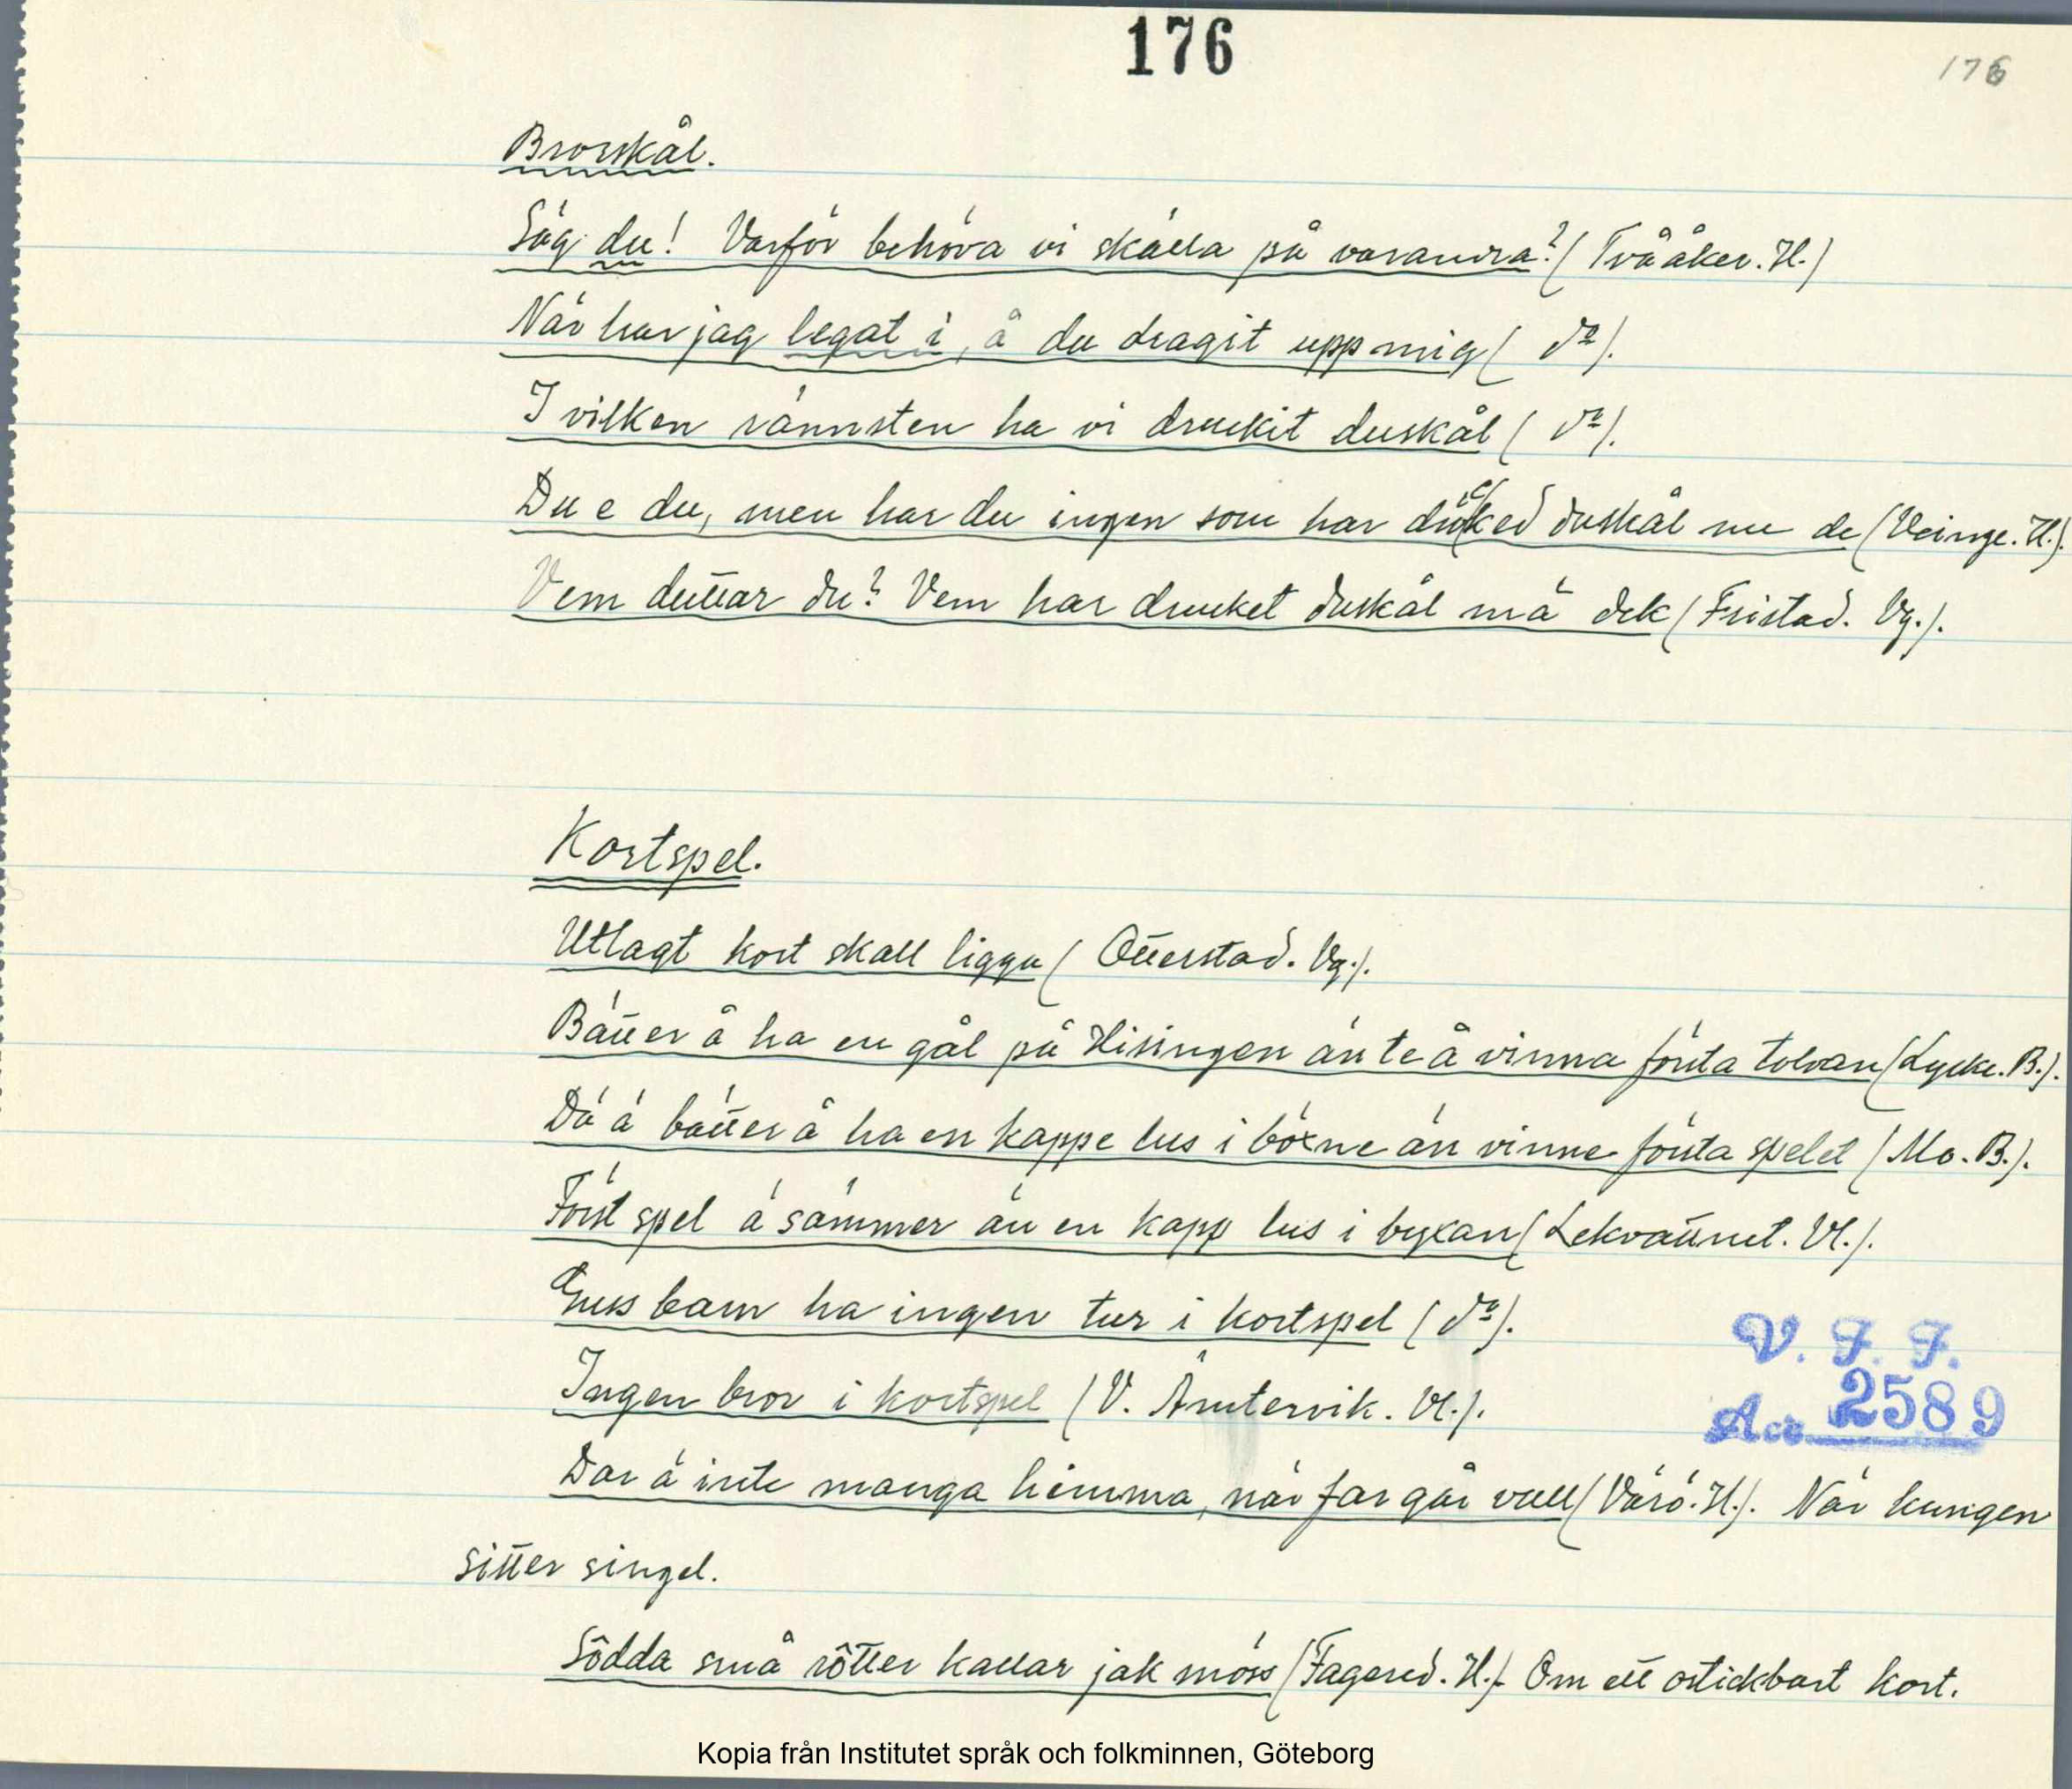 176
176
Brorskål.
Säg du! Varför behöva vi skälla på varandra? (Tvååker. H.)
När har jag legat i, å du dragit upp mig (do).
I vilken rännsten ha vi druckit duskål (do).
Du e du, men har du ingen som har ducked duskål mu de (Veinge. H.).
Vem duttar du? Vem har drucket duskål mä dek (Fristad. Vg.).
Kortspel.
Utlagt kort skall ligga (Otterstad. Vg.).
Bätter å ha en gål på Hisingen än te å vinna första tolvan (Lycke. B.).
Dä ä bätter å ha en kappe lus i böxne än vinne första spelet (Mo. B.).
Först spel ä sämmer än en kapp lus i byxan (Lekvattnet. Vl.).
Guss barn ha ingen tur i kortspel (do).
Ingen bror i kortspel (V. Ämtervik. Vl.).
Dar ä inte manga hemma, när far går vall (Värö. H.). När kungen
sitter singel.
Södda små rötter kallar jak möss (Fagered. H.). Om ett ostickbart kort.
V. F. F.
Acc. 2589
Kopia från Institutet språk och folkminnen, Göteborg